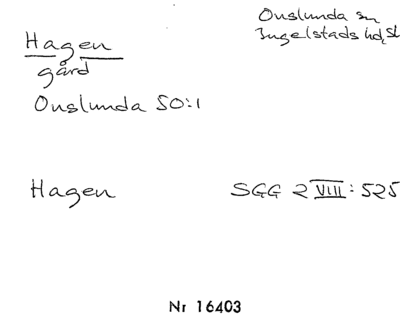 Onslunda sn
Ingelstads hd, Sk
Hagen
gård
Onslunda 50:1
Hagen
SGG 2 VIII: 525
Nr 16403